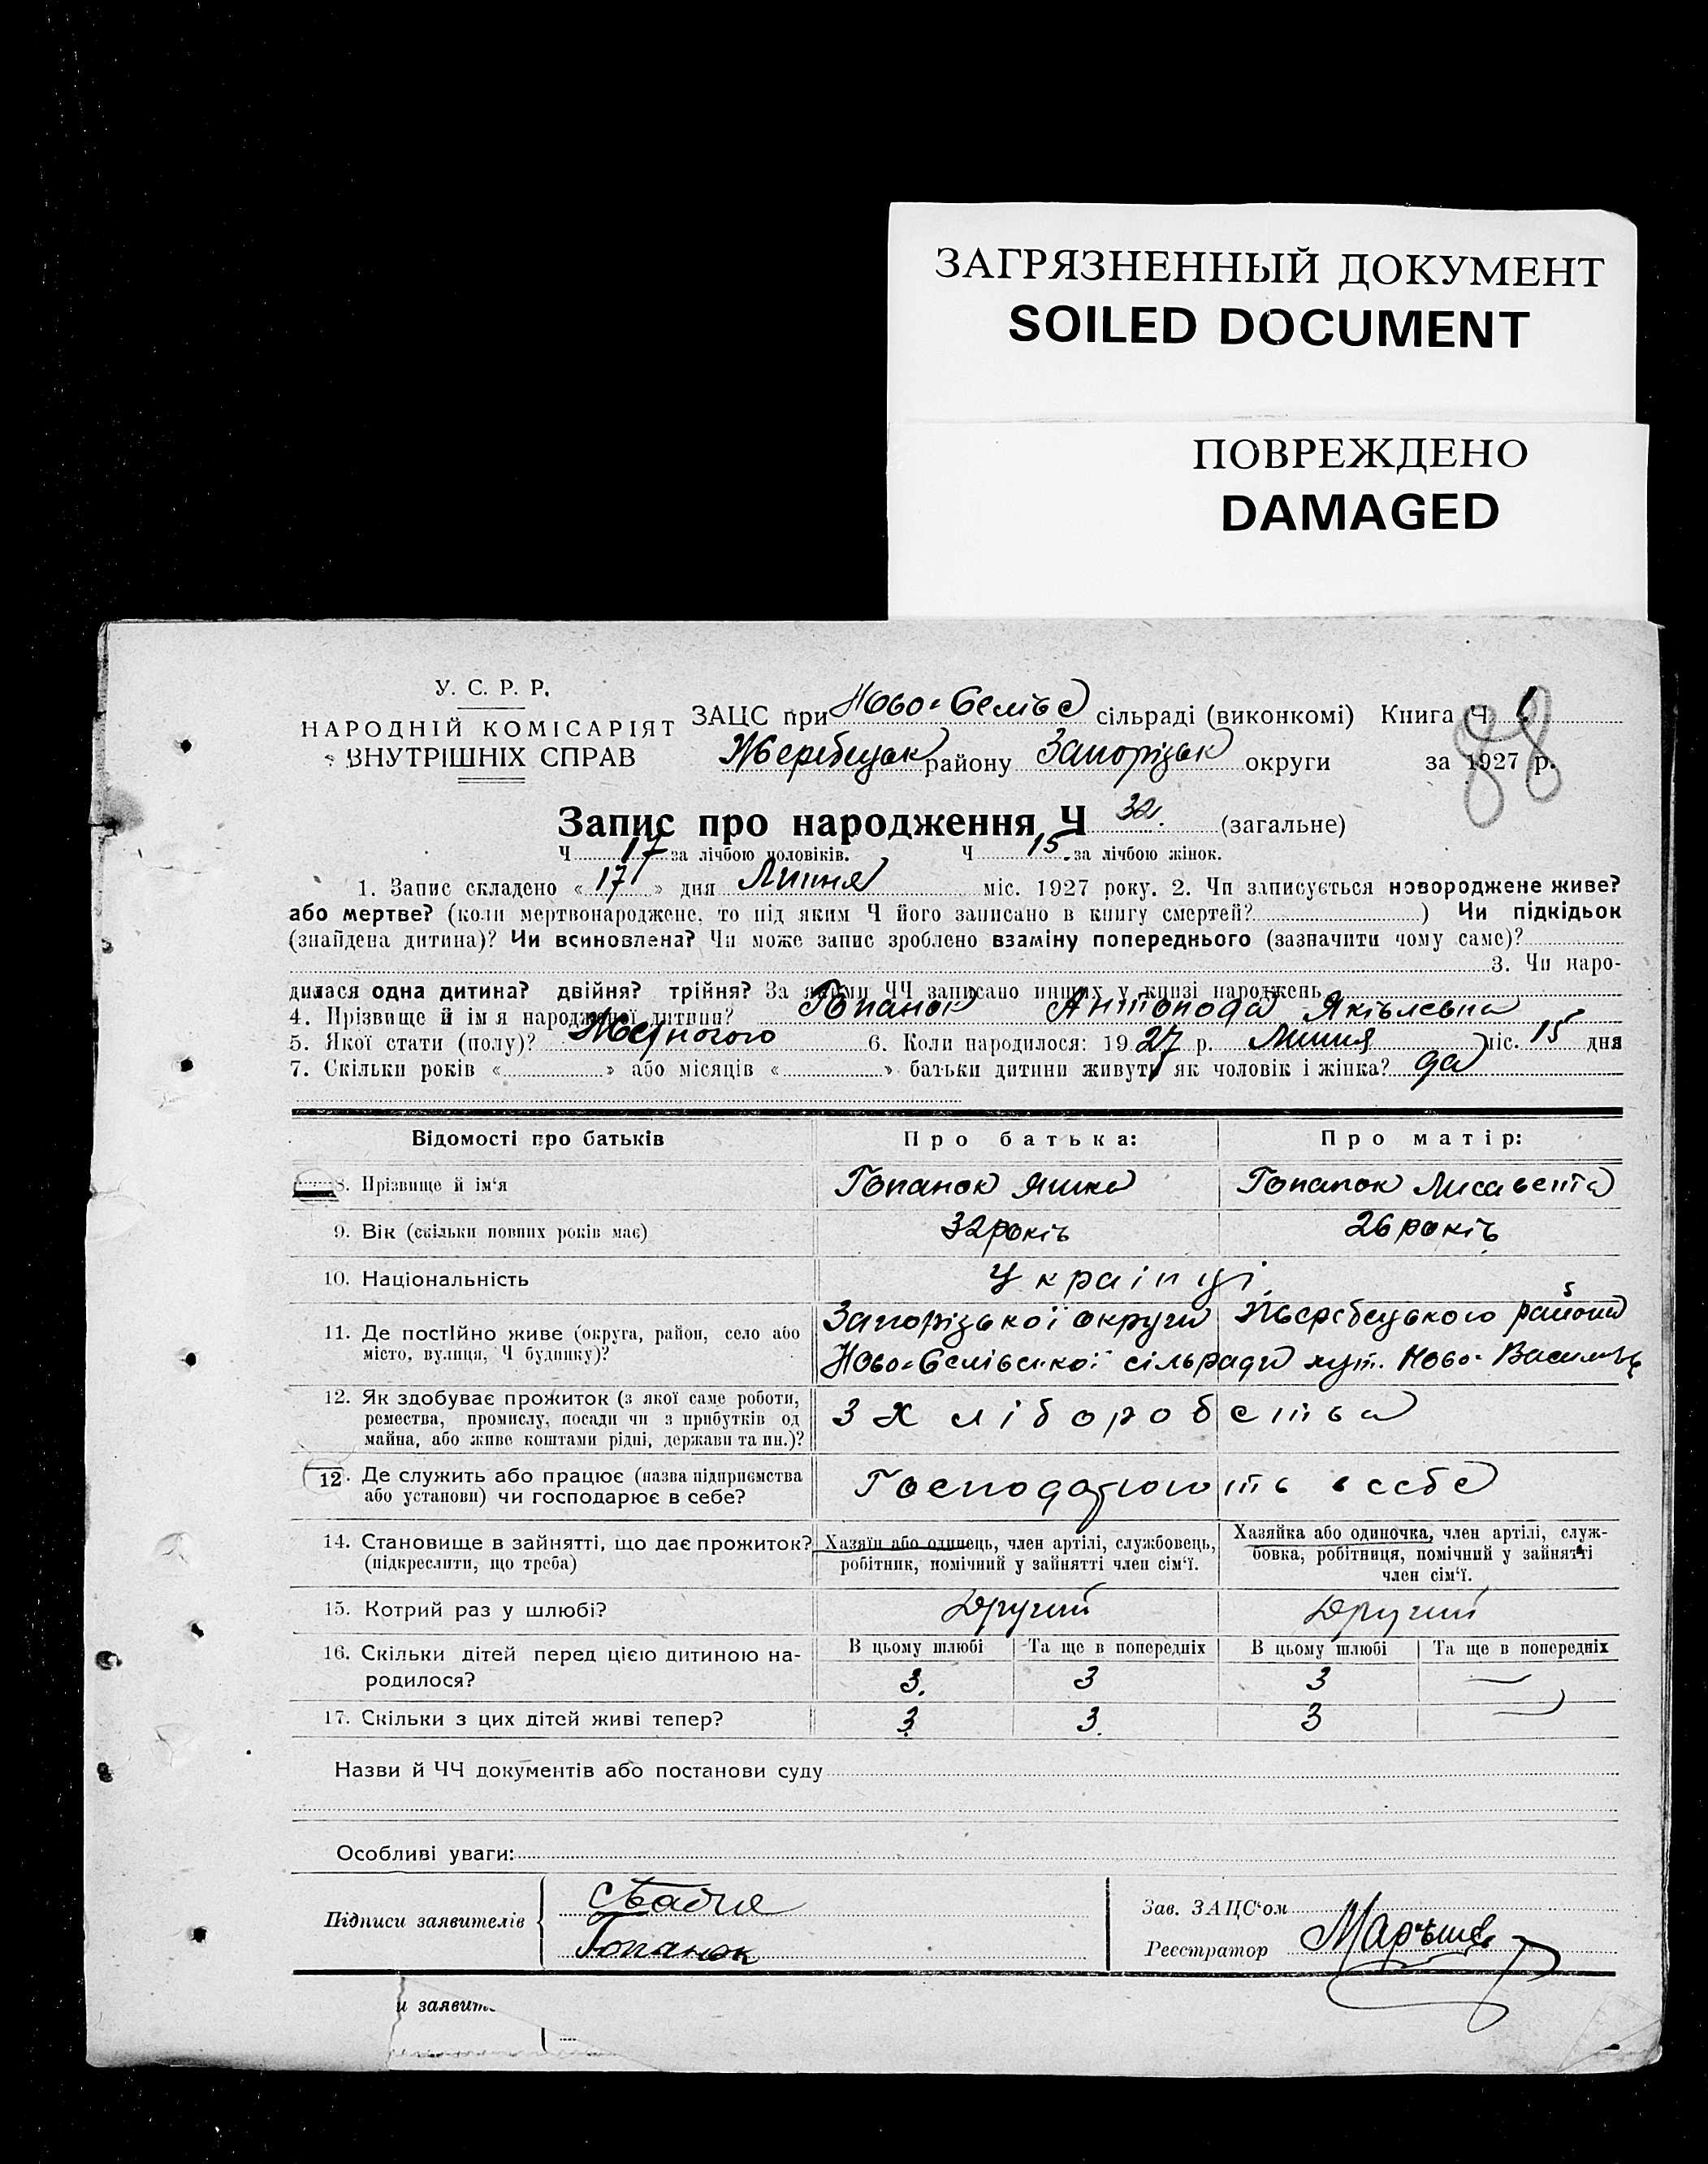 ЗАГРЯЗНЕННЫЙ ДОКУМЕНТ
SOILED DOCUMENT
ПОВРЕЖДЕНО
DAMAGED
У. С. Р. Р.
НАРОДНІЙ КОМІСАРІЯТ
ВНУТРІШНІХ СПРАВ
ЗАЦС при сільраді (виконкомі) Книга Ч
88
Жеребецьк району Запорізьк округи за 1927 р.
Запис про народження Ч 32. (загальне)
Ч 17 за лічбою чоловіків. Ч 15. за лічбою жінок.
1. Запис складено « 17 » дня Липня міс. 1927 року. 2. Чи записується новороджене живе?
або мертве? (коли мертвонароджене, то під яким Ч його записано в книгу смертей? ) Чи підкідьок
(знайдена дитина)? Чи всиновлена? Чи може запис зроблено взаміну попереднього (зазначити чому саме)?
3. Чи наро-
дилася одна дитина? двійня? трійня? За якими ЧЧ записано инших у книзі народжень
4. Прізвище й ім я народженої дитини? Гопанок Яківлевна
5. Якої стати (полу)? 6. Коли народилося: 1927 р. Липня міс. 15 дня
7. Скільки років « » або місяців « » батьки дитини живуть як чоловік і жінка? да
Відомості про батьків Про батька: Про матір:
8. Прізвище й ім'я Гопанок Яшка Гопанок Лисавента
9. Вік (скільки повних років має) 32 років 26 років
10. Національність Українці
11. Де постійно живе (округа, район, село або місто, вулиця, Ч будинку)?
Запорізької округи Жеребецького района
сільради хут. Ново-
12. Як здобуває прожиток (з якої саме роботи,
ремества, промислу, посади чи з прибутків од
майна, або живе коштами рідні, держави та ин.)?
З хліборобства
12. Де служить або працює (назва підприємства
або установи) чи господарює в себе?
Господарюють в себе
14. Становище в зайнятті, що дає прожиток?
(підкреслити, що треба)
Хазяїн або одинець, член артілі, службовець,
робітник, помічний у зайнятті член сім'ї.
Хазяйка або одиночка, член артілі, служ-
бовка, робітниця, помічний у зайнятті
член сім'ї.
15. Котрий раз у шлюбі? Другий Другий
16. Скільки дітей перед цією дитиною на-
родилося?
В цьому шлюбі Та ще в попередніх В цьому шлюбі Та ще в попередніх
3. 3 3 —
17. Скільки з цих дітей живі тепер? 3 3. 3 —
Назви й ЧЧ документів або постанови суду
Особливі уваги:
Підписи заявителів
Гопанок
Зав. ЗАЦС'ом
Реєстратор
и заявит